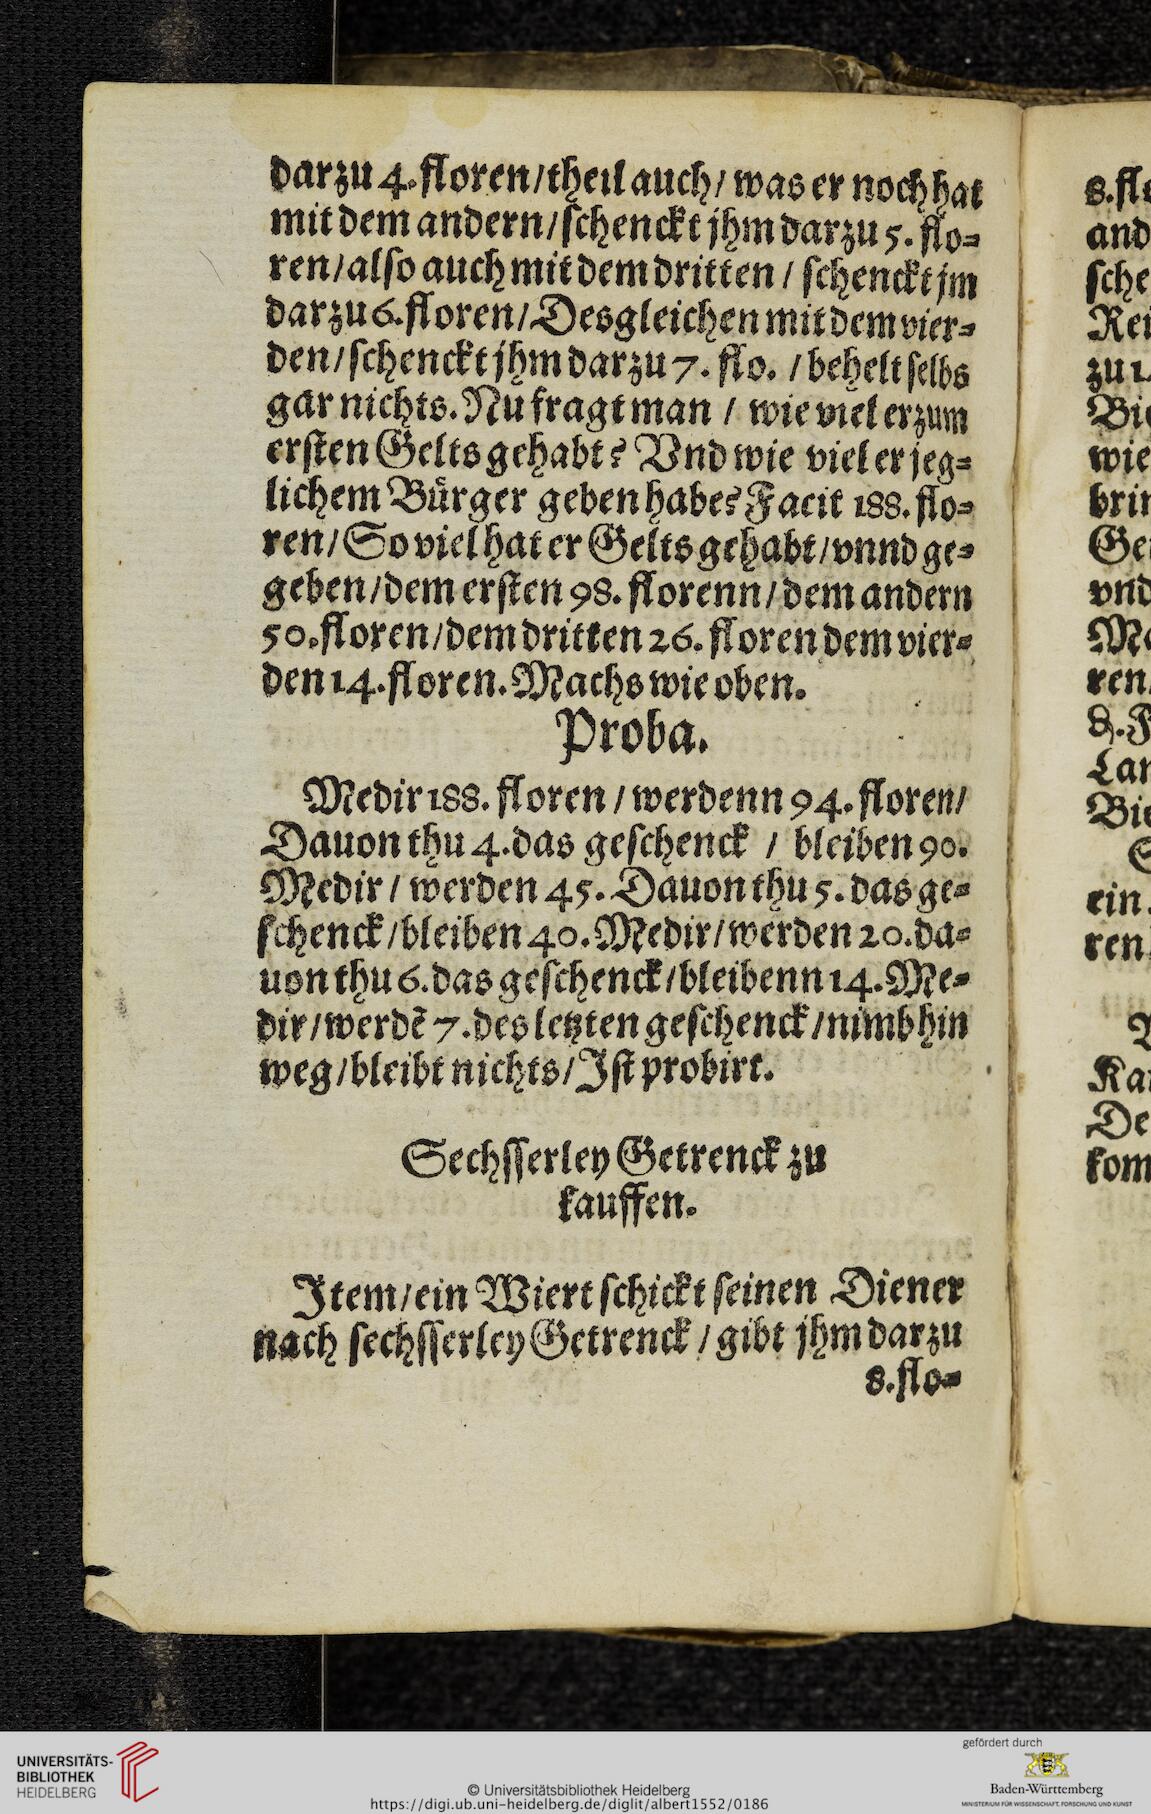 darzu 4. floren/theil auch/ was er noch hat
mit dem andern/schenckt jhm darzu 5. flo=
ren/also auch mit dem dritten / schenckt jm
darzu 6. floren/Desgleichen mit dem vier=
den/schenckt jhm darzu 7. flo. / behelt selbs
gar nichts. Nu fragt man / wie viel er zum
ersten Gelts gehabt? Vnd wie viel er jeg=
lichem Bürger geben habe? Facit 188. flo=
ren/So viel hat er Gelts gehabt/vnnd ge=
geben/dem ersten 98. florenn/dem andern
50. floren/dem dritten 26. floren dem vier=
den 14. floren. Machs wie oben.
Proba.
Medir 188. floren / werdenn 94. floren/
Dauon thu 4. das geschenck / bleiben 90.
Medir / werden 45. Dauon thu 5. das ge=
schenck/bleiben 40. Medir/werden 20. da=
uon thu 6. das geschenck/bleibenn 14. Me=
dir/werdē 7. des letzten geschenck/nimb hin
weg/bleibt nichts/Ist probirt.
Sechsserley Getrenck zu
kauffen.
Item/ein Wiert schickt seinen Diener
nach sechsserley Getrenck / gibt jhm darzu
8. flo=
8. flo
and
sche
Rei
zu 1.
Bie
wie
brin
Ge
vnd
Ma
ren
8. F
Lan
Bie
ein
ren
Kan
De
kom
UNIVERSITÄTS-
BIBLIOTHEK
HEIDELBERG
© Universitätsbibliothek Heidelberg
https://digi.ub.uni-heidelberg.de/diglit/albert1552/0186
gefördert durch
Baden-Württemberg
MINISTERIUM FÜR WISSENSCHAFT, FORSCHUNG UND KUNST